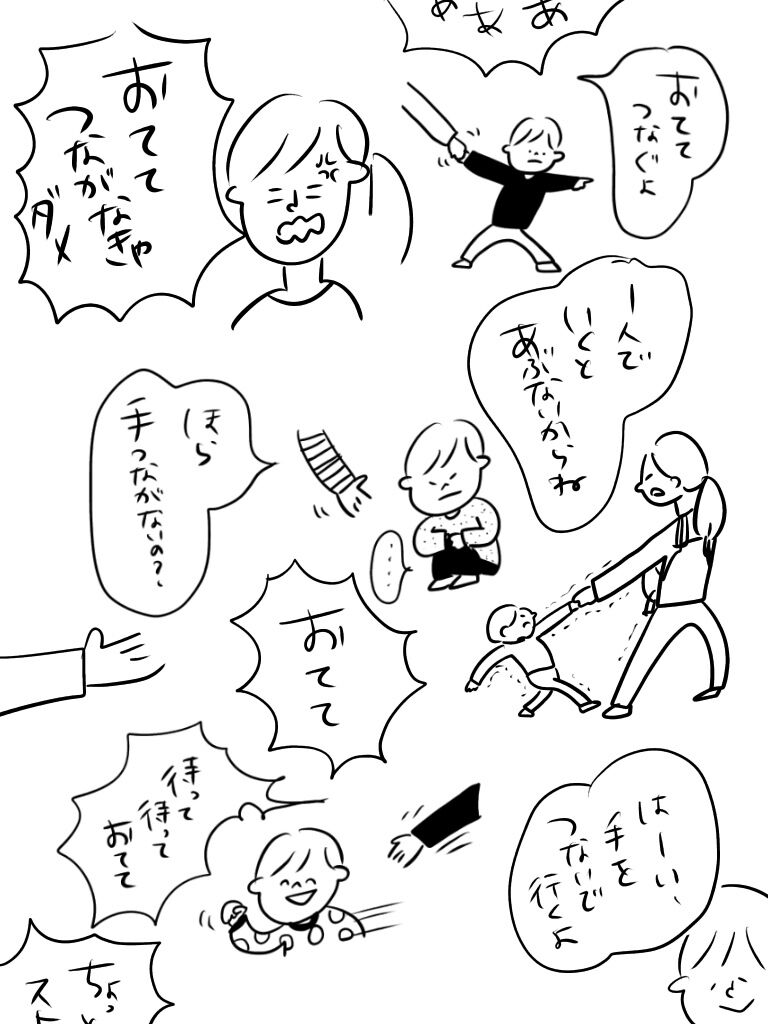 あああ
おてて
つなぐよ
おてて
つながなきゃ
ダメ
1人で
いくと
あぶないからね
ほら
手つながないの？
・・・・
おてて
待って
待って
おてて
はーい、
手を
つないで
行くよ
ちょっと
スト